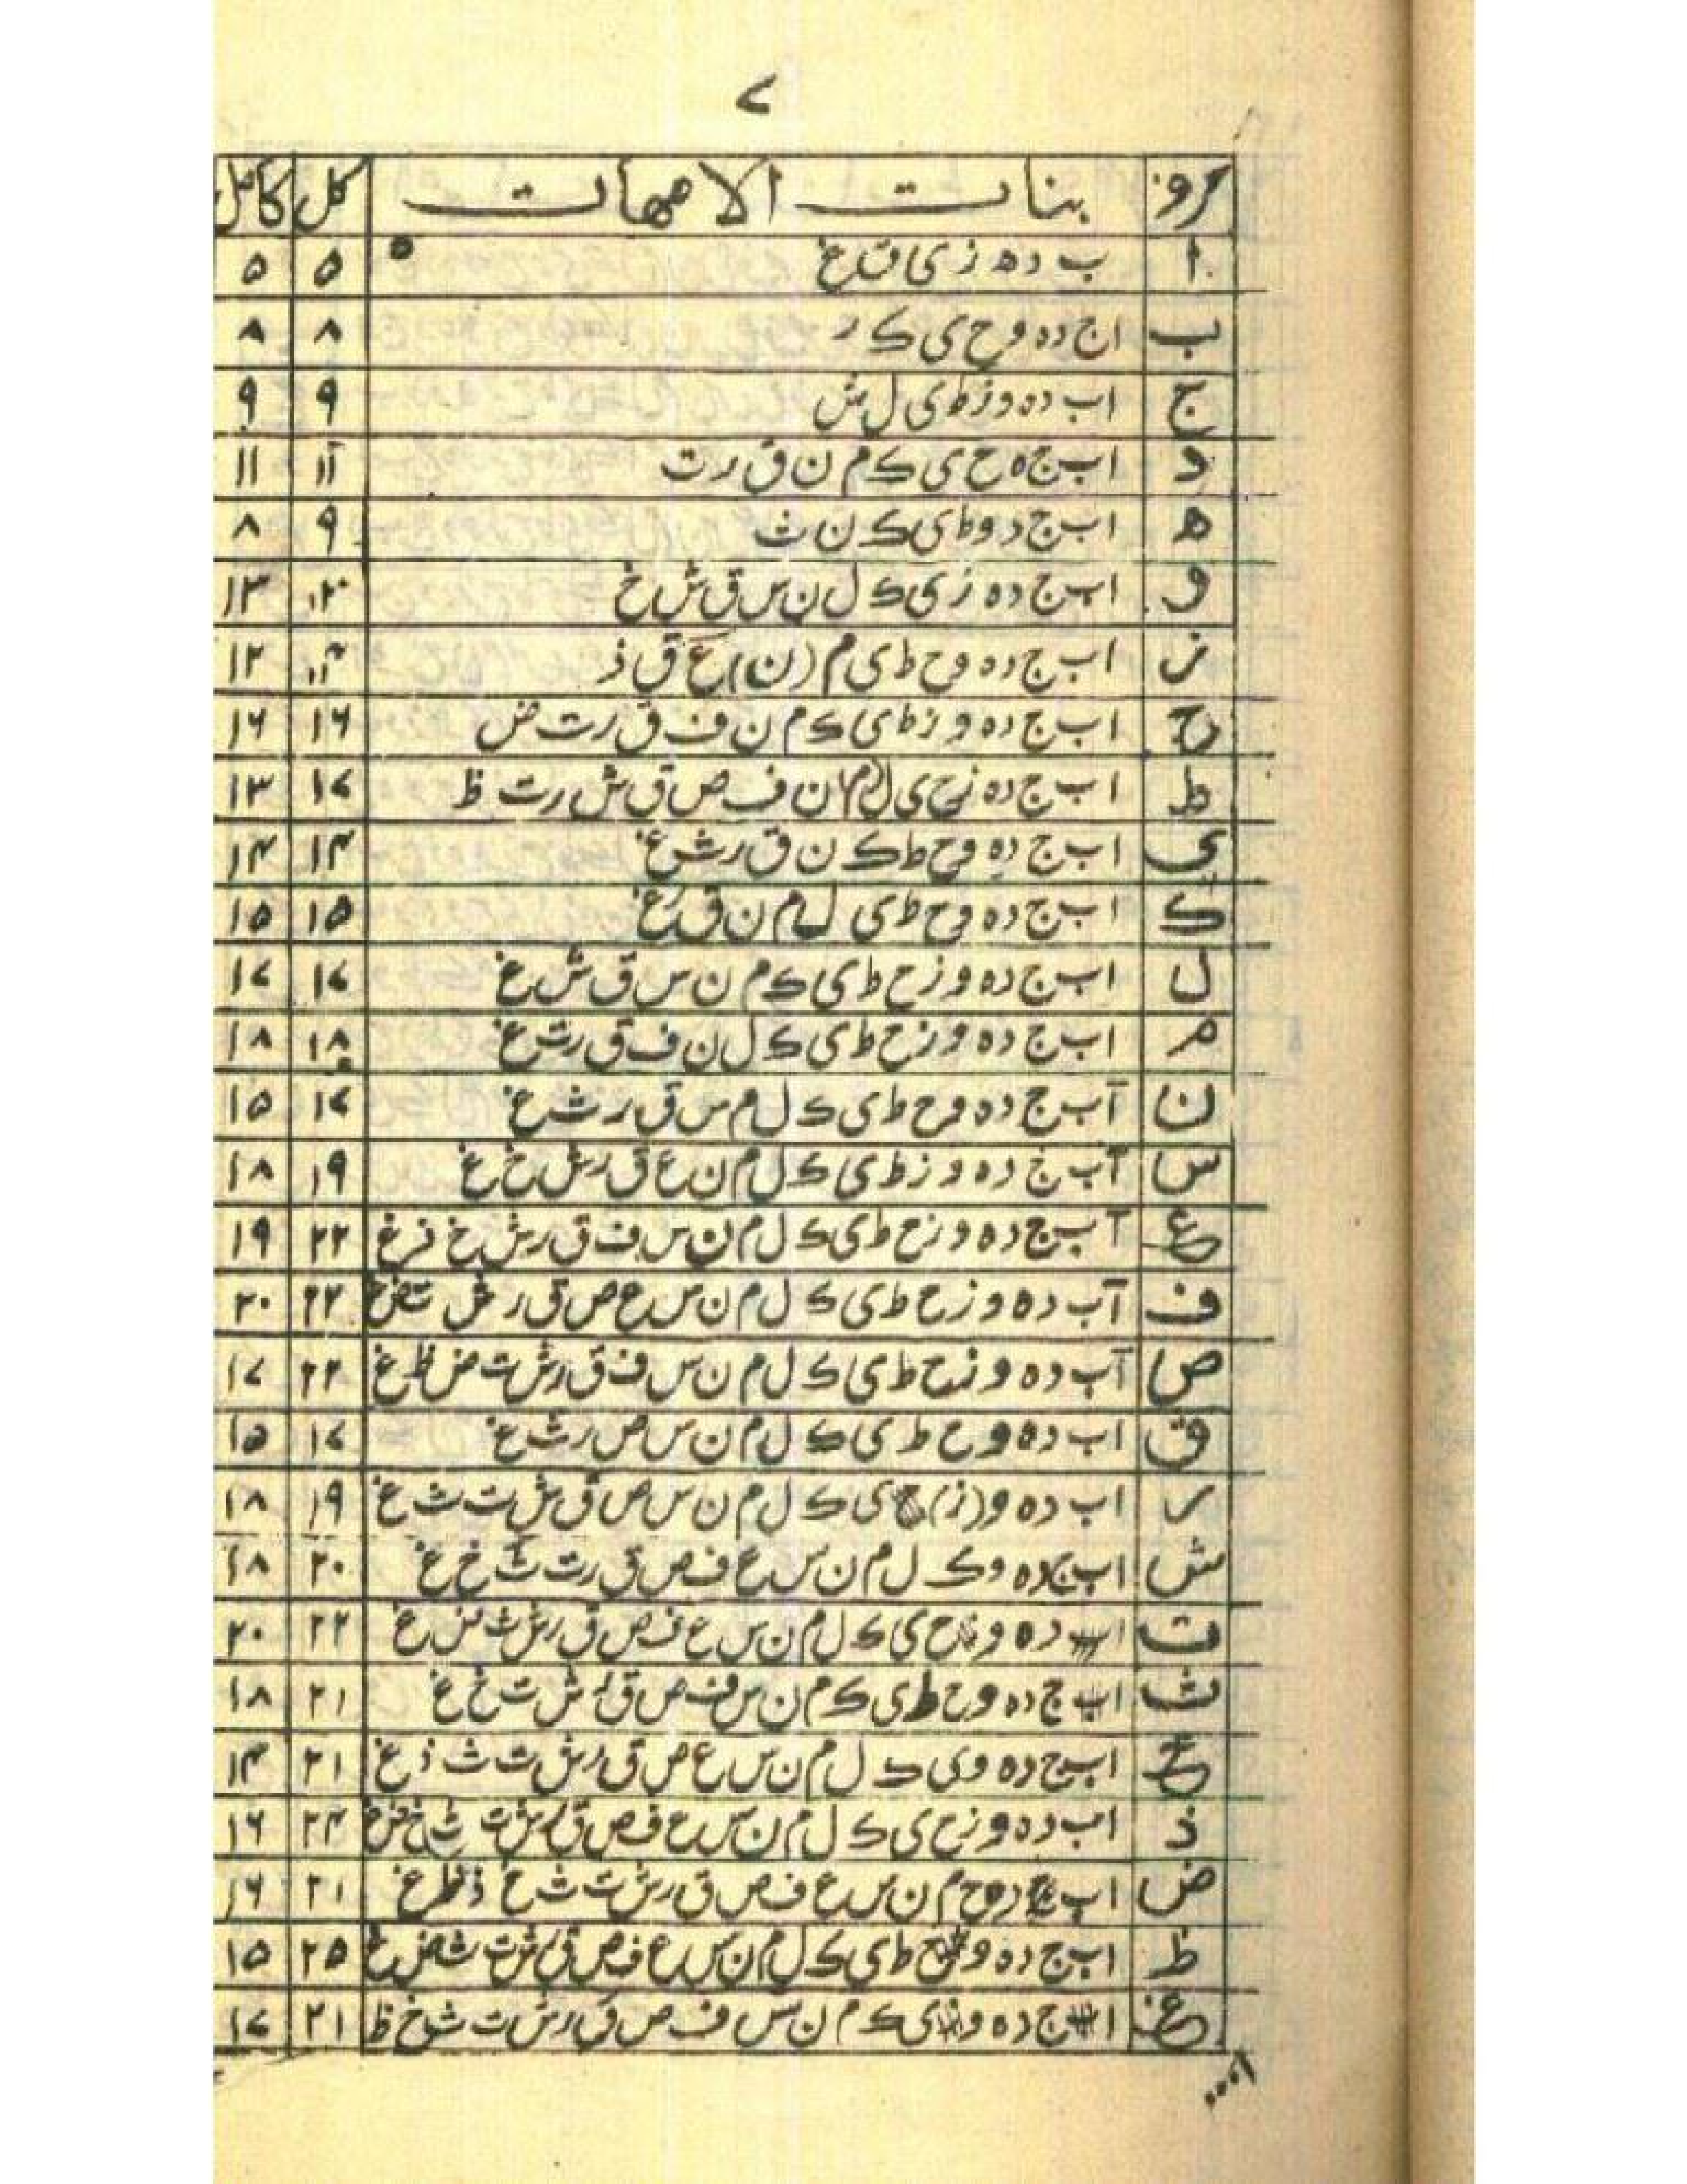 ۷
حروف بنات الامهات کل کامل
ا ب د ه ز ی ق غ ۵ ۵
ب ا ج د ه و ح ی ک ر ۸ ۸
ج ا ب د ه و ز ط ی ل ش ۹ ۹
د ا ب ج ه ح ی ک م ن ق ر ت ۱۱ ۱۱
ه ا ب ج د و ط ی ک ن ث ۹ ۸
و ا ب ج د ه ز ی ک ل ن س ق ش خ ۱۳
ز ا ب ج د ه و ح ط ی م (ن) ع ق ذ ۱۲
ح ا ب ج د ه و ز ط ی ک م ن ف ق ر ت ض ۱۶ ۱۶
ط ا ب ج د ه ز ح ی ن ف ص ق ش ر ت ظ ۱۷ ۱۳
ی ا ب ج د ه و ح ط ک ن ق ر ش غ ۱۴ ۱۴
ک ا ب ج د ه و ح ط ی ل م ن ق ر غ ۱۵ ۱۵
ل ا ب ج د ه و ز ح ط ی ک م ن س ق ش غ ۱۷ ۱۷
م ا ب ج د ه و ز ح ط ی ک ل ن ف ق ر ت غ ۱۸ ۱۸
ن ا ب ج د ه و ح ط ی ک ل م س ق ر ث غ ۱۷ ۱۵
س ا ب ج د ه و ز ط ی ک ل م ن ع ق ر ش خ غ ۱۹ ۱۸
ع ا ب ج د ه و ز ح ط ی ک ل م ن س ف ق ر ش خ ذ غ ۲۲ ۱۹
ف ا ب د ه و ز ح ط ی ک ل م ن س ع ص ق ر ش ت ض غ ۲۲ ۲۰
ص ا ب د ه و ز ح ط ی ک ل م ن س ف ق ر ش ت ض ظ غ ۲۲ ۱۷
ق ا ب د ه و ح ط ی ک ل م ن س ص ر ث غ ۱۷ ۱۵
ر ا ب د ه و (ز) ح ی ک ل م ن س ص ق ش ت ث غ ۱۹ ۱۸
ش ا ب ج د ه و ک ل م ن س ع ف ص ق ر ت ث خ غ ۲۰ ۱۸
ت ا ب د ه و ح ی ک ل م ن س ع ف ص ق ر ش ث ض غ ۲۲ ۲۰
ث ا ب ج د ه و ح ط ی ک م ن س ف ص ق ر ش ت خ غ ۲۱ ۱۸
خ ا ب ج د ه و ی ک ل م ن س ع ص ق ر ش ت ث ذ غ ۲۱ ۱۴
ذ ا ب د ه و ز ح ی ک ل م ن س ع ف ص ق ر ش ت ث خ ض غ ۲۴ ۱۶
ض ا ب د و ح م ن س ع ف ص ق ر ش ت ث خ ذ ظ غ ۲۱ ۱۶
ظ ا ب ج د ه و ح ط ی ک ل م ن س ع ف ص ق ر ش ت ث ض غ ۲۵ ۱۵
غ ا ج د ه و ی ک م ن س ف ص ق ر ش ت ث خ ظ ۲۱ ۱۷
۱۰۰۰